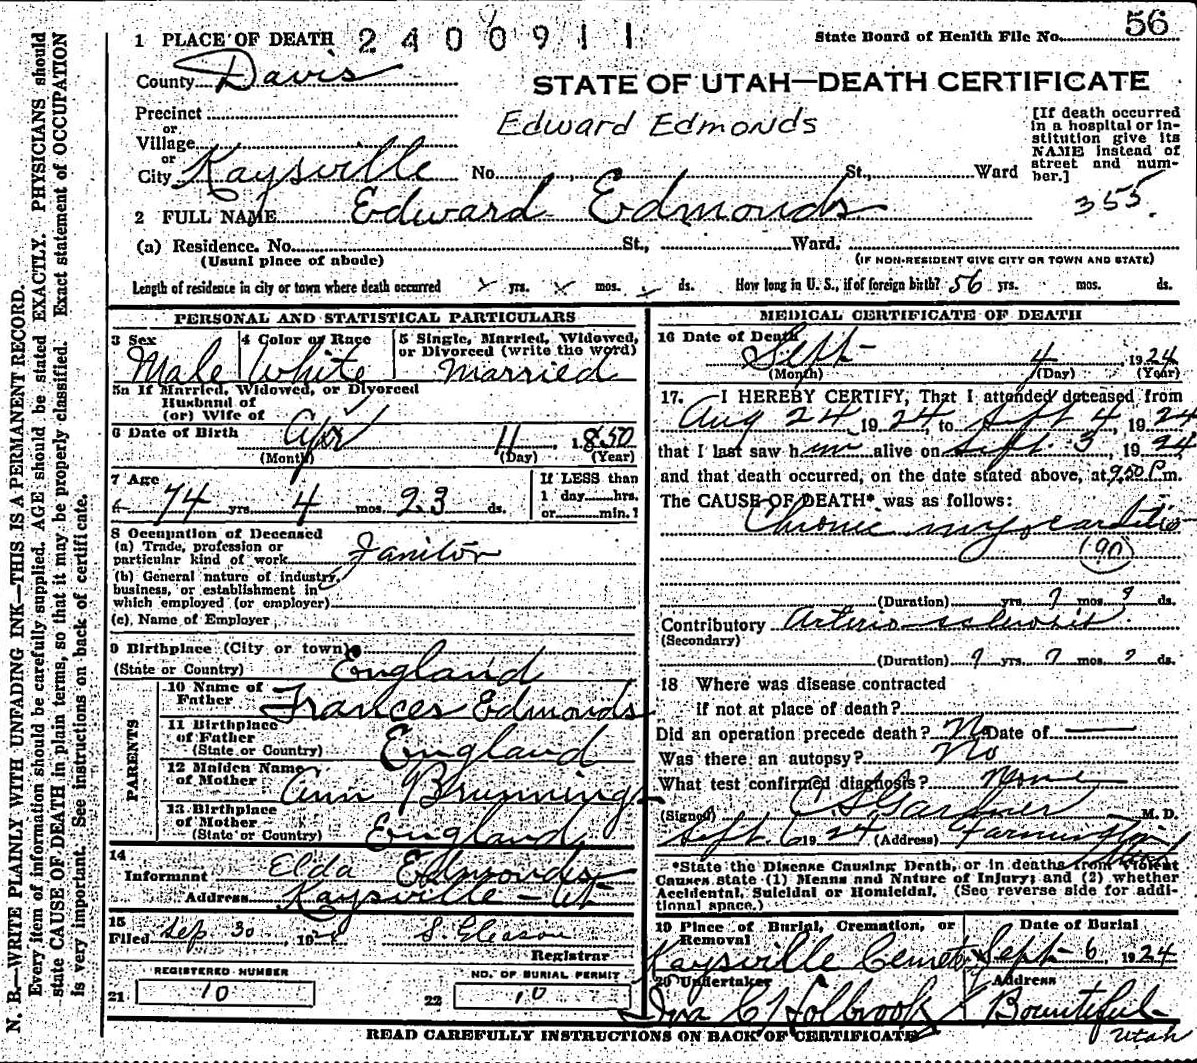 56
1 PLACE OF DEATH 2400911 State Board of Health File No.
County Davis
STATE OF UTAH—DEATH CERTIFICATE
Precinct
or
Village
or
City Kaysville No. St., Ward
Edward Edmonds
[If death occurred
in a hospital or in-
stitution give its
NAME instead of
street and num-
ber.]
2 FULL NAME Edward Edmonds
355.
(a) Residence. No. St., Ward.
(Usual place of abode) (IF NON-RESIDENT GIVE CITY OR TOWN AND STATE)
Length of residence in city or town where death occurred yrs. mos. ds. How long in U. S., if of foreign birth? 56 yrs. mos. ds.
PERSONAL AND STATISTICAL PARTICULARS
3 Sex 4 Color or Race 5 Single, Married, Widowed,
or Divorced (write the word)
Male White Married
5a If Married, Widowed, or Divorced
Husband of
(or) Wife of
6 Date of Birth Apr 11, 1850
(Month) (Day) (Year)
7 Age If LESS than
74 yrs. 4 mos. 23 ds. 1 day hrs.
or min.?
8 Occupation of Deceased
(a) Trade, profession or
particular kind of work Janitor
(b) General nature of industry,
business, or establishment in
which employed (or employer)
(c) Name of Employer
9 Birthplace (City or town)
(State or Country) England
PARENTS
10 Name of
Father Frances Edmonds
11 Birthplace
of Father
(State or Country) England
12 Maiden Name
of Mother Ann Brunning
13 Birthplace
of Mother
(State or Country) England
14
Informant Elda Edmonds
Address Kaysville - Ut
15
Filed Sep. 30, 19 S. Gleason
Registrar
REGISTERED NUMBER NO. OF BURIAL PERMIT
21 10 22 10
MEDICAL CERTIFICATE OF DEATH
16 Date of Death Sept 4 1924
(Month) (Day) (Year)
17. I HEREBY CERTIFY, That I attended deceased from
Aug 24, 1924 to Sept 4, 1924
that I last saw him alive on Sept. 3, 1924
and that death occurred, on the date stated above, at 9.50 P.m.
The CAUSE OF DEATH* was as follows:
Chronic myocarditis
(90)
(Duration) yrs. ? mos. ? ds.
Contributory Arterio-sclerosis
(Secondary)
(Duration) ? yrs. ? mos. ? ds.
18 Where was disease contracted
if not at place of death?
Did an operation precede death? No Date of —
Was there an autopsy? No
What test confirmed diagnosis? None
(Signed) C S Gardner M. D.
Sept. 6 1924 (Address) Farmington
*State the Disease Causing Death, or in deaths from Violent
Causes state (1) Means and Nature of Injury; and (2) whether
Accidental, Suicidal or Homicidal. (See reverse side for addi-
tional space.)
19 Place of Burial, Cremation, or
Removal
Date of Burial
Kaysville Cemetery Sept 6, 1924
20 Undertaker Address
Holbrook Bountiful
Utah
READ CAREFULLY INSTRUCTIONS ON BACK OF CERTIFICATE
N. B.—WRITE PLAINLY WITH UNFADING INK—THIS IS A PERMANENT RECORD.
Every item of information should be carefully supplied. AGE should be stated EXACTLY. PHYSICIANS should
state CAUSE OF DEATH in plain terms, so that it may be properly classified. Exact statement of OCCUPATION
is very important. See instructions on back of certificate.